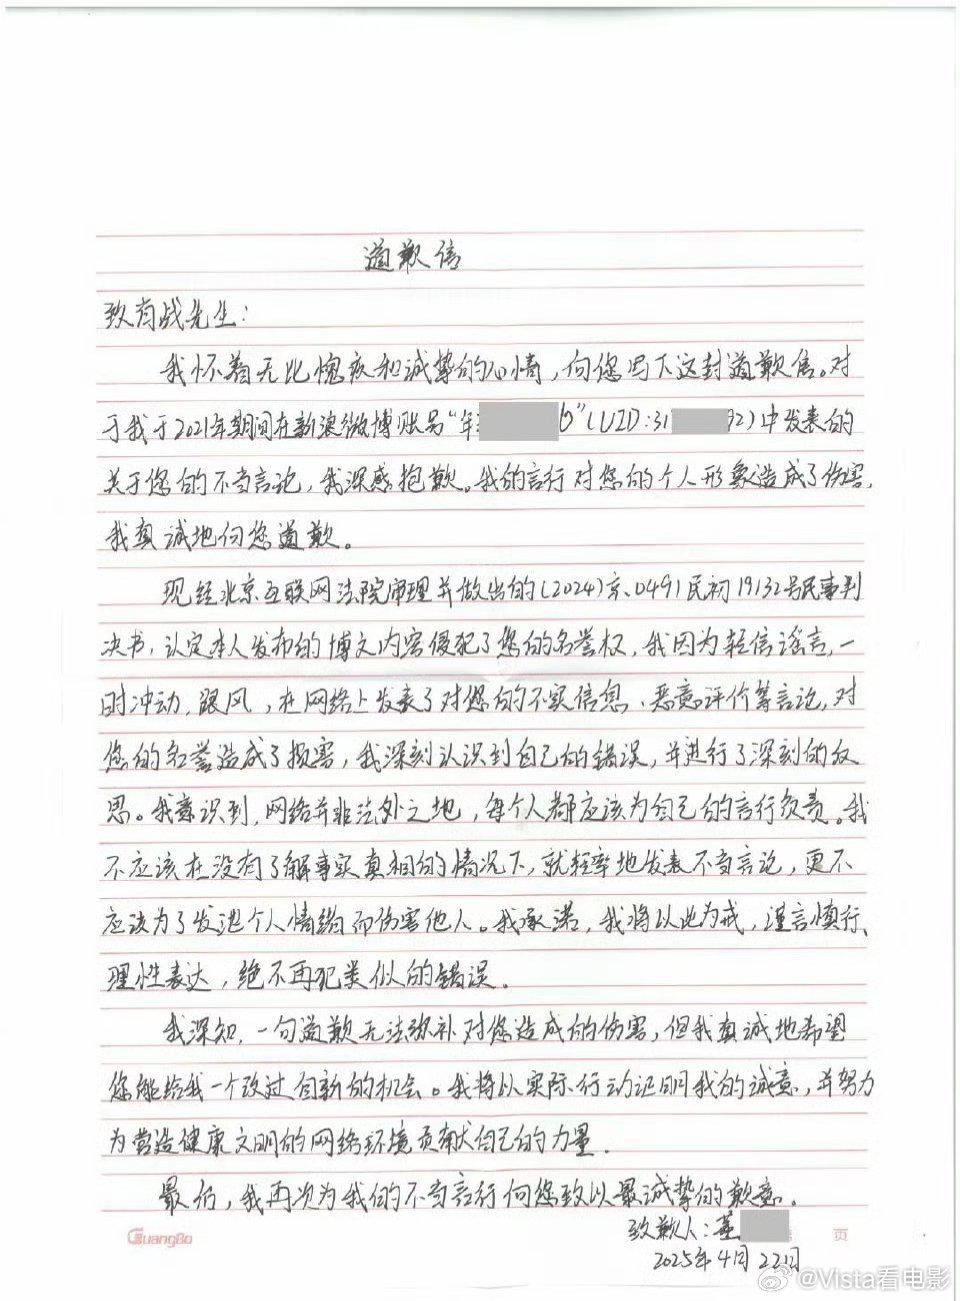 道歉信
致肖战先生:
我怀着无比愧疚和诚挚的心情,向您写下这封道歉信。对
于我于2021年期间在新浪微博账号“年 6”(UID:31 92)中发表的
关于您的不当言论,我深感抱歉。我的言行对您的个人形象造成了伤害,
我真诚地向您道歉。
现经北京互联网法院审理并做出的(2024)京0491民初19132号民事判
决书,认定本人发布的博文内容侵犯了您的名誉权,我因为轻信谣言,一
时冲动,跟风,在网络上发表了对您的不实信息、恶意评价等言论,对
您的名誉造成了损害,我深刻认识到自己的错误,并进行了深刻的反
思。我意识到,网络并非法外之地,每个人都应该为自己的言行负责。我
不应该在没有了解事实真相的情况下,就轻率地发表不当言论,更不
应该为了发泄个人情绪而伤害他人。我承诺,我将以此为戒,谨言慎行、
理性表达,绝不再犯类似的错误。
我深知,一句道歉无法弥补对您造成的伤害,但我真诚地希望
您能给我一个改过自新的机会。我将以实际行动证明我的诚意,并努力
为营造健康文明的网络环境贡献自己的力量.
最后,我再次为我的不当言行向您致以最诚挚的歉意。
致歉人:董
GuangBo 页
2025年4月22日
@Vista看电影